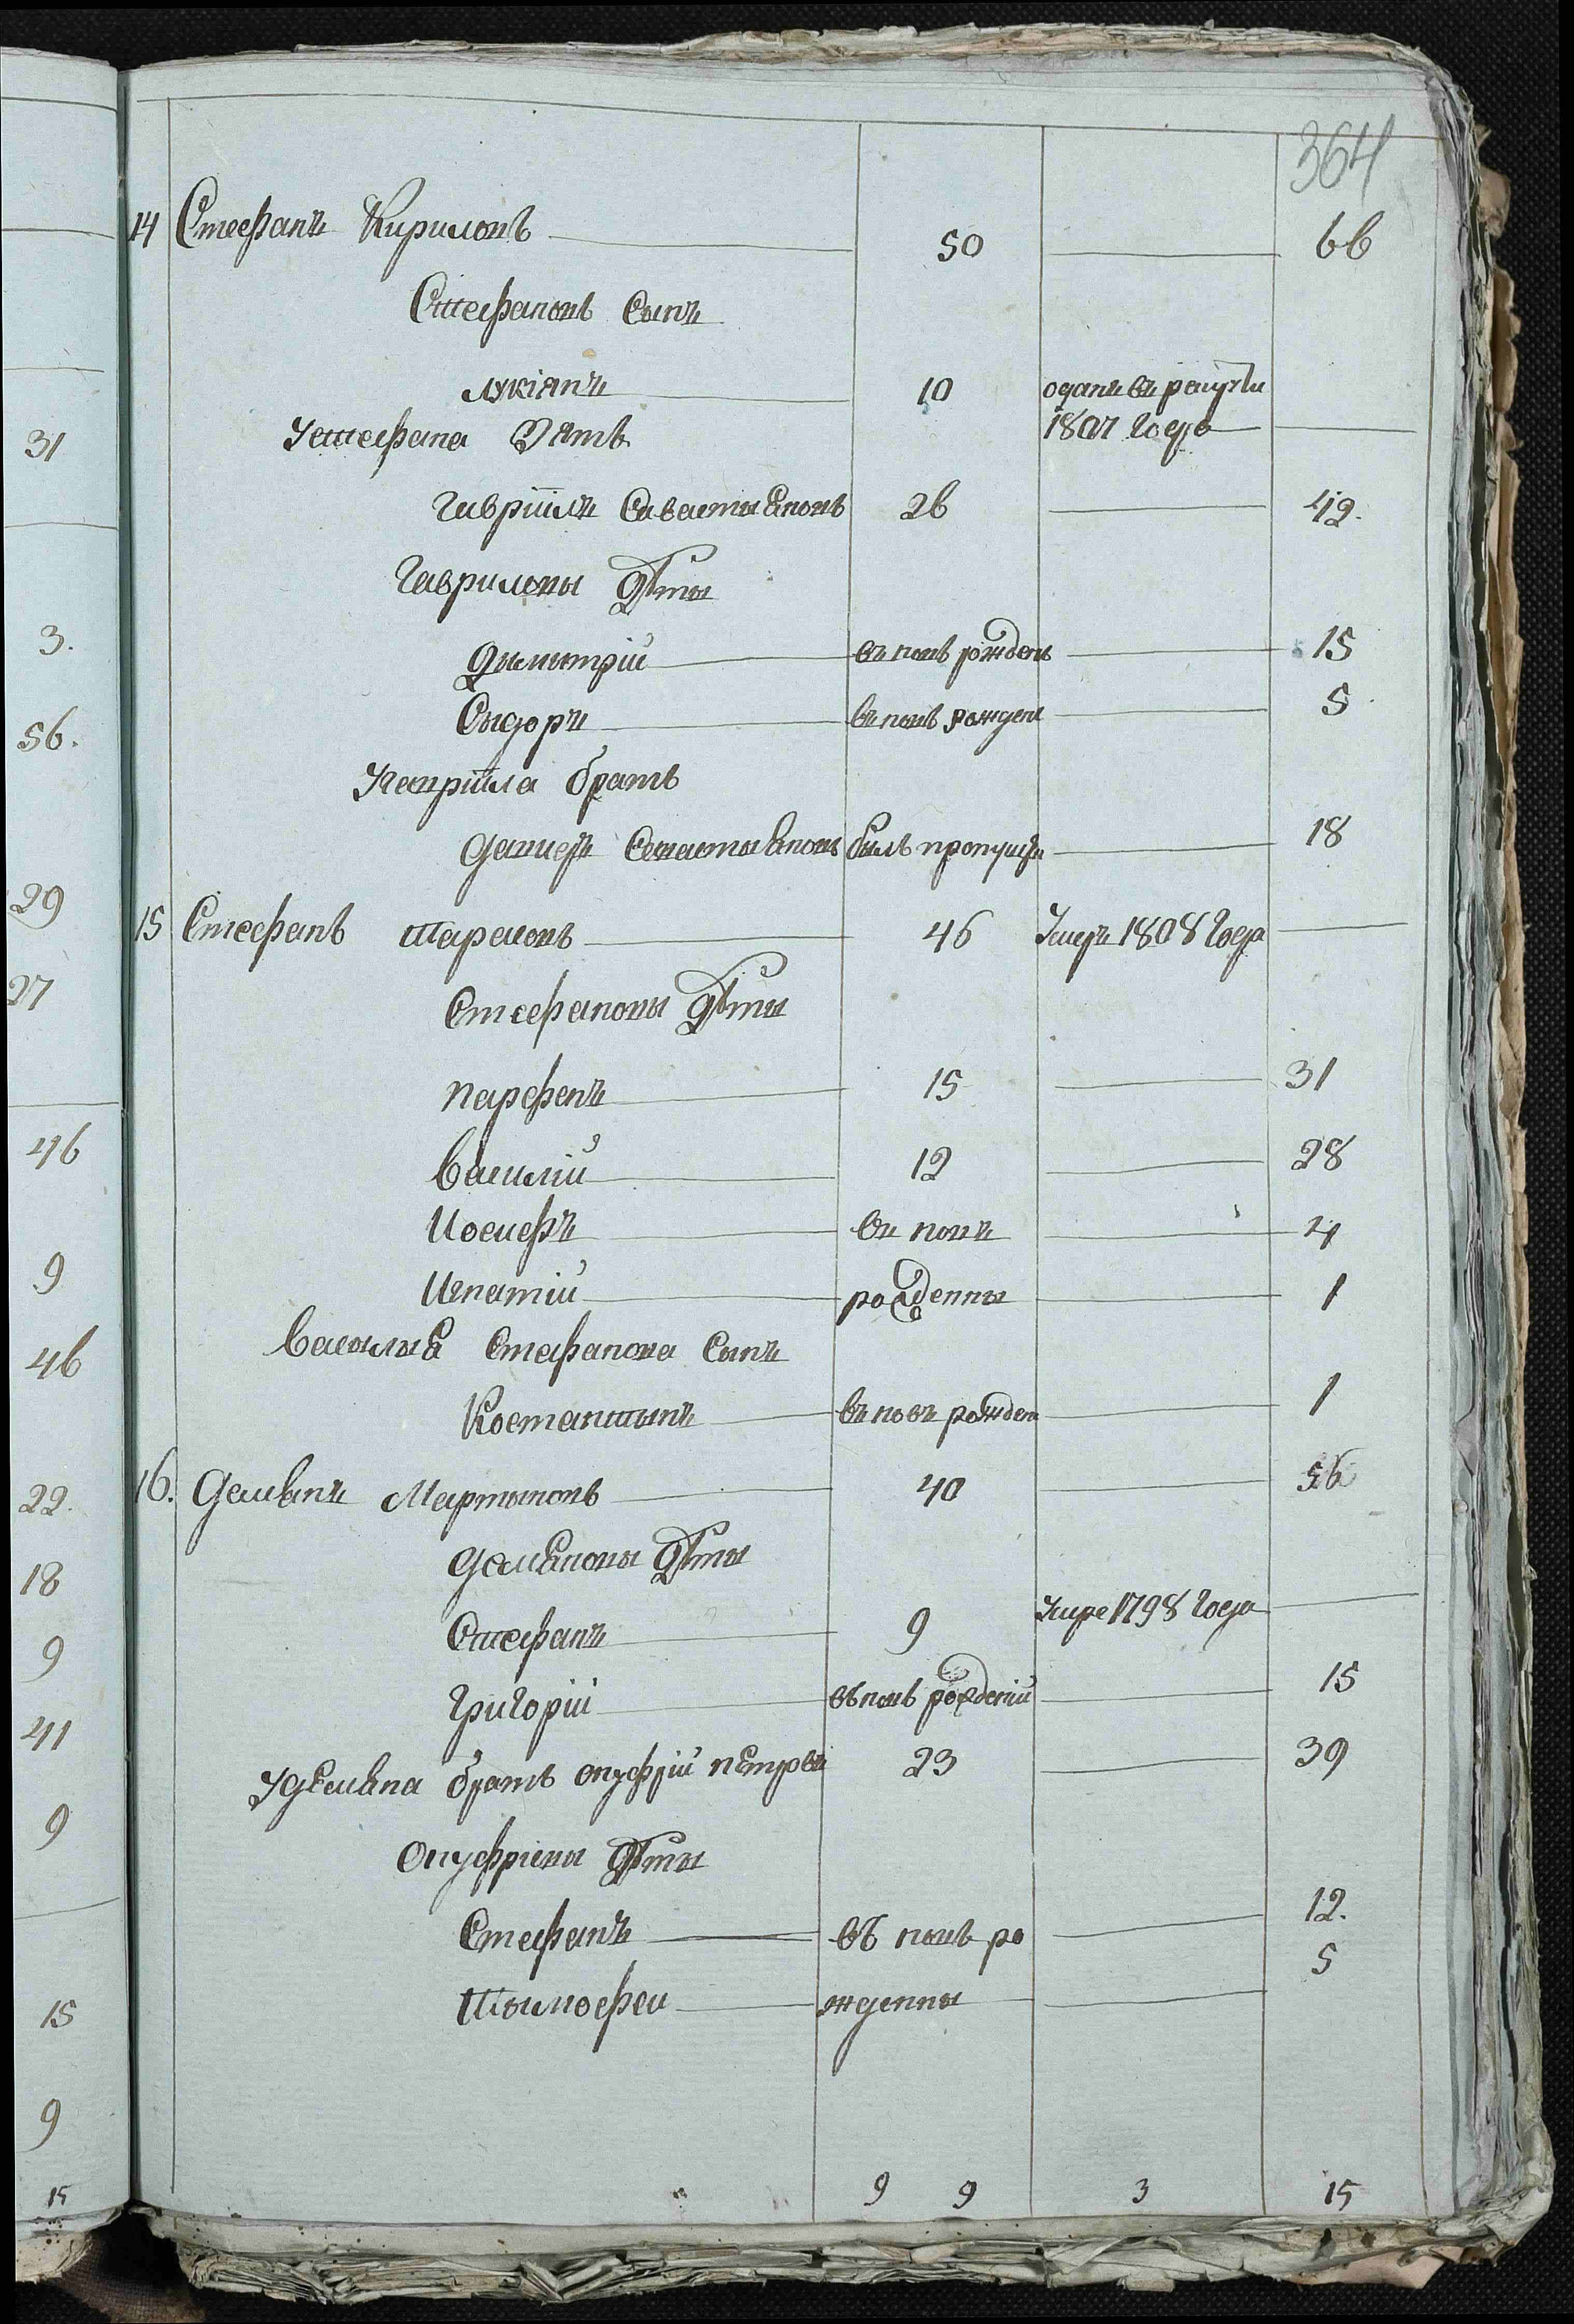 364
14 Стефанъ Кириловъ 50 66
Стефановъ Сынъ
лукіянъ 10 оданъ въ рекруты
1807 Года
У стефана Зять
гаврііилъ Савастьяновъ 26 42.
Гавриловы дѣты
дымытрій въ новь рожденъ 15
Сыдоръ въ новь рожден 5
У гавріила братъ
данıелъ Севастьяновъ билъ пропущен 18
15 Стефанъ тарасовъ 46 Умеръ 1808 Года
Стефановы дѣты
парфенъ 15 31
василій 12 28
Иосифъ въ новъ 4
Игнатій рожденны 1
Васылыя Стефанова Сынъ
Костантынъ въ новъ рожден 1
16. демянъ Мартыновъ 40 56
демяновы дѣты
Стефанъ 9 Умре 1798 Года
григорій въ новь рожденій 15
У демяна братъ онуфрій петровъ 23 39
Онуфріевы дѣты
Стефанъ въ новь ро 12.
Тымофеи жденны 5
9 9 3 15
31
3.
56.
29
27
46
9
46
22.
18
9
41
9
15
9
15